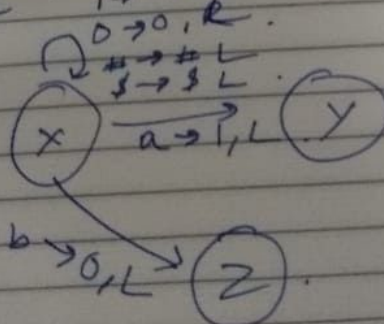 0 → 0, R.
# → # L
$ → $ L
X
a → 1, L
Y
b → 0, L
Z